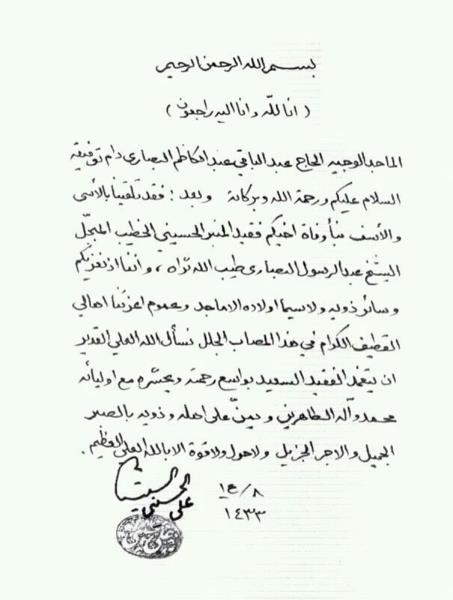 بسم الله الرحمن الرحيم
( انا لله و انا اليه راجعون )
الماجد الوجيه الحاج عبد الباقي عبد الكاظم البصاري دام توفيقه
السلام عليكم ورحمة الله وبركاته وبعد : فقد تلقينا بالأسى
والأسف نبأ وفاة اخيكم فقيد المنبر الحسيني الخطيب المبجّل
الشيخ عبد الرسول البصاري طيب الله ثراه ، و أننا اذ نعزيكم
وسائر ذويه ولا سيما اولاده الاماجد وعموم اعزتنا اهالي
القطيف الكرام في هذا المصاب الجلل نسأل الله العلي القدير
ان يتغمد الفقيد السعيد بواسع رحمته ويحشره مع اوليائه
محمد وآله الطاهرين و يمنّ على اهله و ذويه بالصبر
الجميل و الاجر الجزيل ولا حول ولا قوة الا بالله العلي العظيم .
١٤/٨
١٤٣٣
علي الحسيني السيستاني